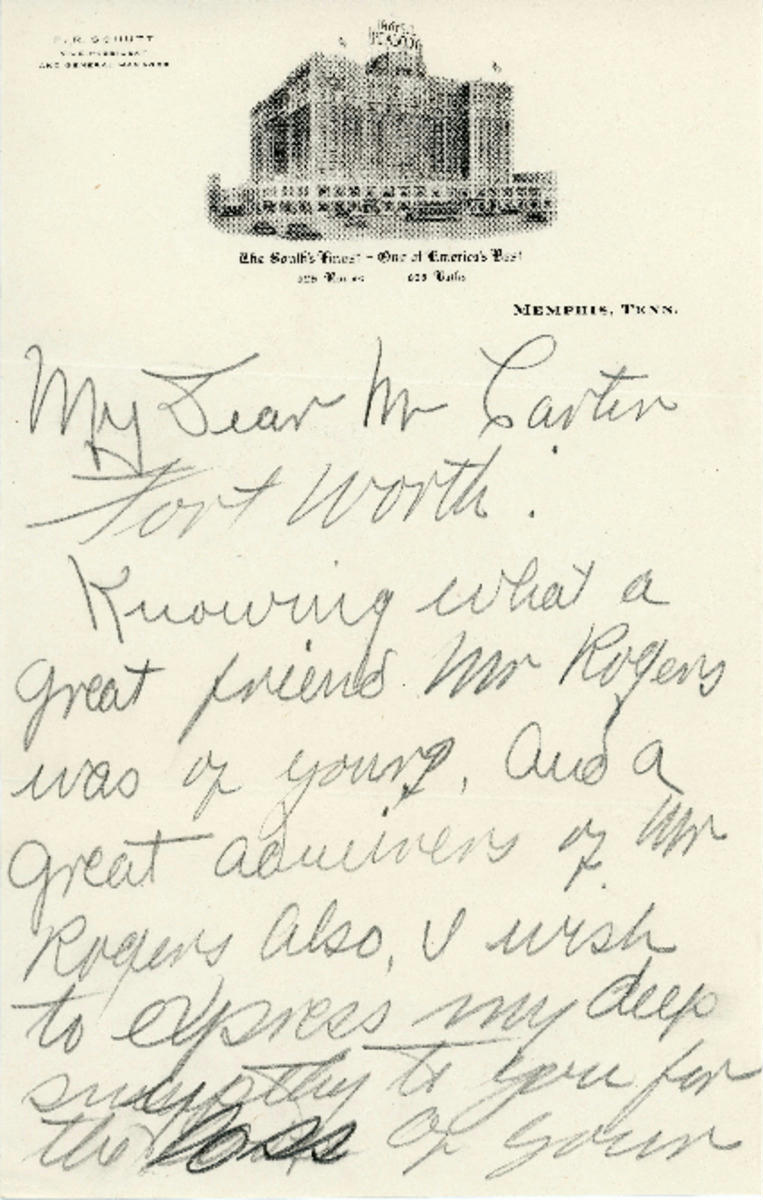 F. R. SCHUTT
VICE PRESIDENT
AND GENERAL MANAGER
HOTEL
PEABODY
The South's Finest - One of America's Best
625 Rooms 625 Baths
MEMPHIS, TENN.
My Dear Mr Carter
Fort Worth.
Knowing what a
great friend Mr Rogers
was of yours, and a
great admirers of Mr
Rogers also, I wish
to express my deep
sympothy to you for
the loss of your